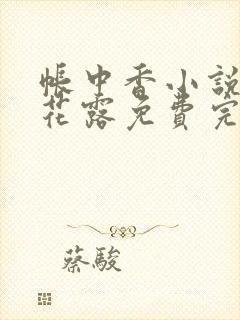 帳中香小說
花露免費完
蔡駿